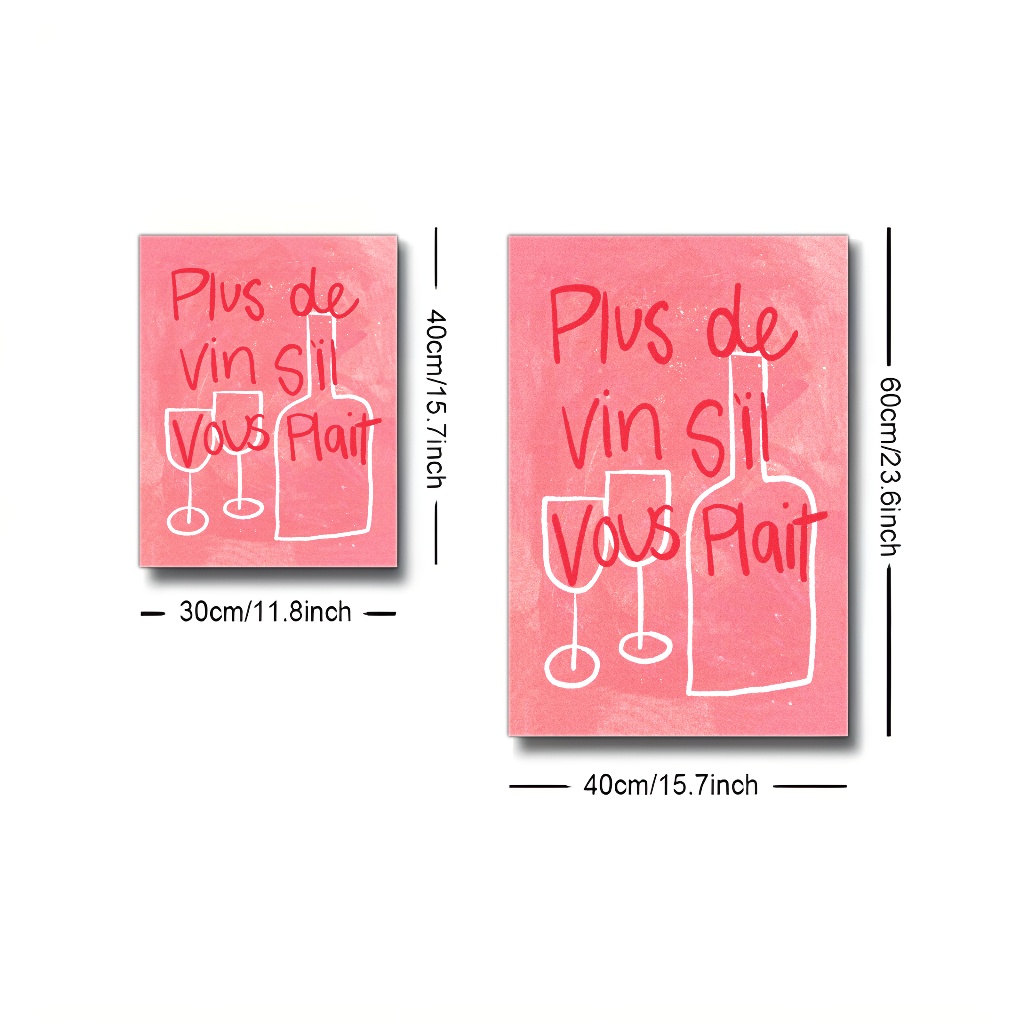 Plus de
vin s'il
Vous Plait
40cm/15.7inch
30cm/11.8inch
Plus de
vin s'il
Vous Plait
60cm/23.6inch
40cm/15.7inch